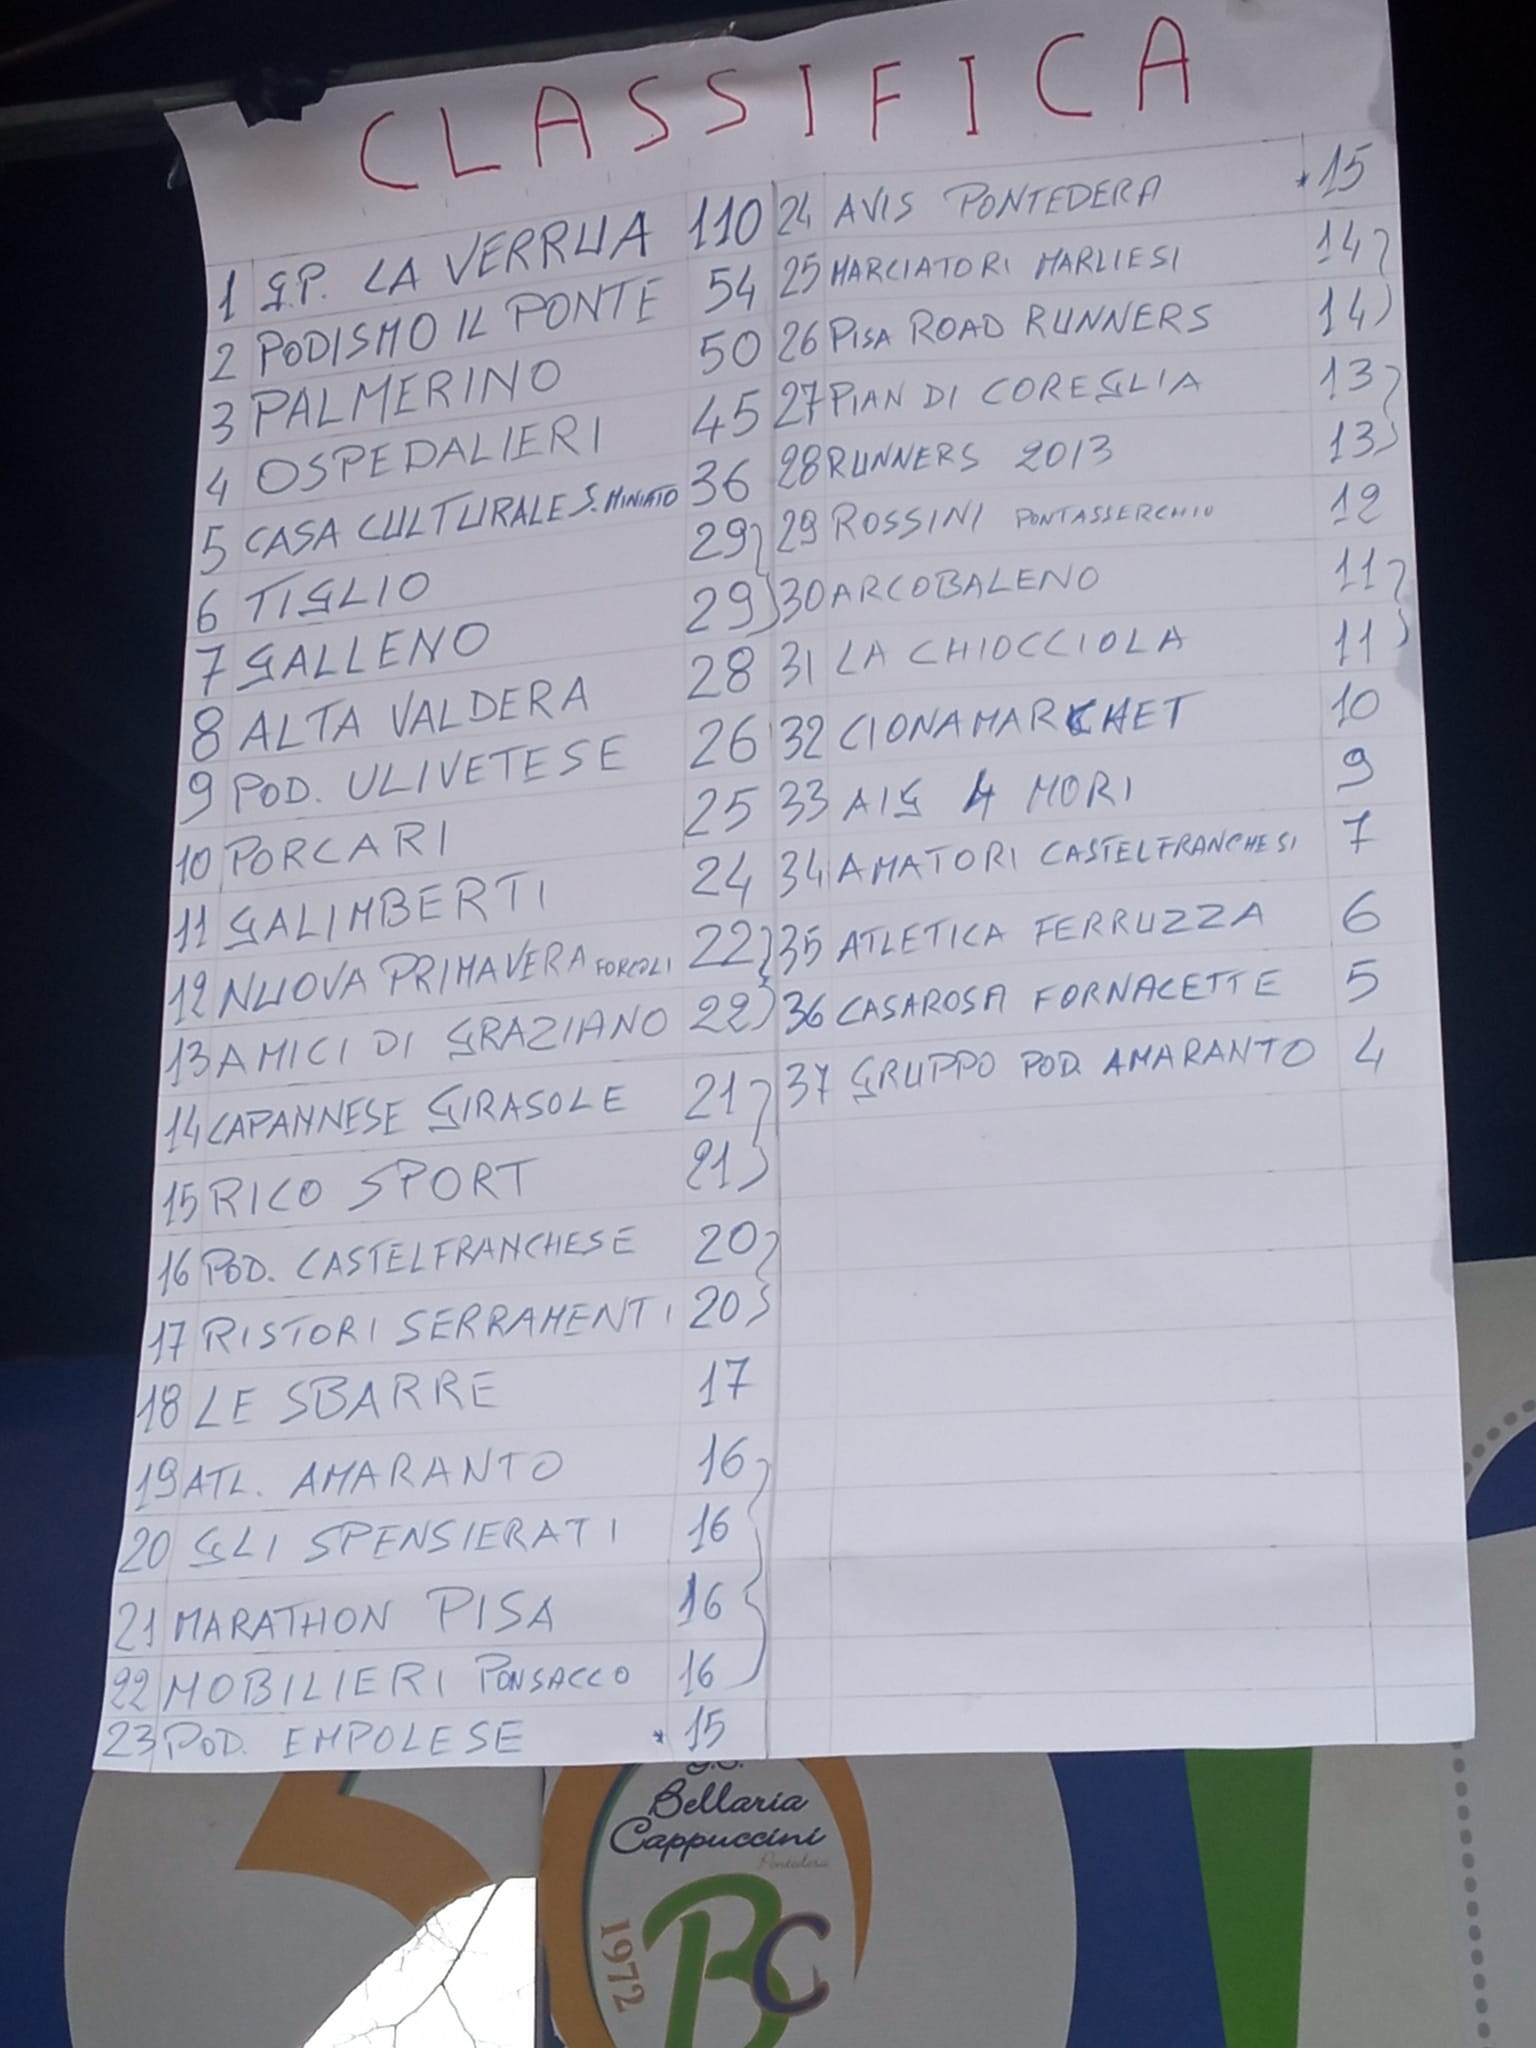 CLASSIFICA
1 G.P. LA VERRUA 110
2 PODISMO IL PONTE 54
3 PALMERINO 50
4 OSPEDALIERI 45
5 CASA CULTURALE S. MINIATO 36
6 TIGLIO 29
7 GALLENO 29
8 ALTA VALDERA 28
9 POD. ULIVETESE 26
10 PORCARI 25
11 GALIMBERTI 24
12 NUOVA PRIMAVERA FORCOLI 22
13 AMICI DI GRAZIANO 22
14 CAPANNESE GIRASOLE 21
15 RICO SPORT 21
16 POD. CASTELFRANCHESE 20
17 RISTORI SERRAMENTI 20
18 LE SBARRE 17
19 ATL. AMARANTO 16
20 GLI SPENSIERATI 16
21 MARATHON PISA 16
22 MOBILIERI PONSACCO 16
23 POD. EMPOLESE * 15
24 AVIS PONTEDERA * 15
25 MARCIATORI MARLIESI 14
26 PISA ROAD RUNNERS 14
27 PIAN DI COREGLIA 13
28 RUNNERS 2013 13
29 ROSSINI PONTASSERCHIO 12
30 ARCOBALENO 11
31 LA CHIOCCIOLA 11
32 CIONAMARKET 10
33 AIG 4 MORI 9
34 AMATORI CASTELFRANCHESI 7
35 ATLETICA FERRUZZA 6
36 CASAROSA FORNACETTE 5
37 GRUPPO POD. AMARANTO 4
G.S.
Bellaria
Cappuccini
Pontedera
BC
1972